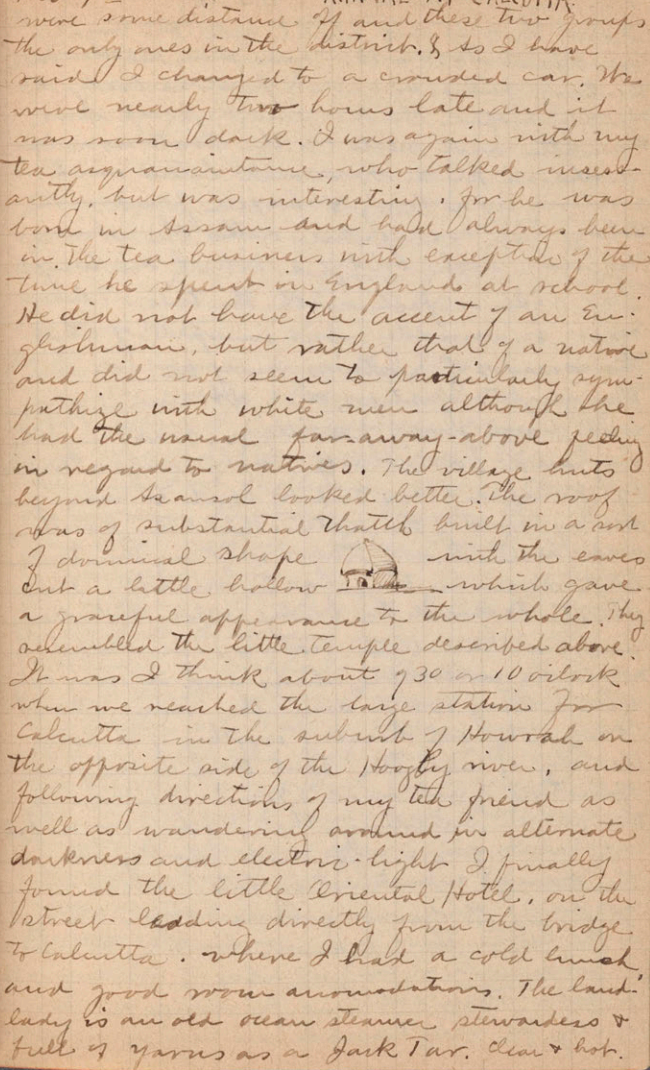 ARRIVE AT CALCUTTA.
were some distance off and these two groups
the only ones in the district. & As I have
said I changed to a crowded car. We
were nearly two hours late and it
was soon dark. I was again with my
tea acquaintance, who talked incess-
antly, but was interesting. for he was
born in Assam and had always been
in the tea business with exception of the
time he spent in England at school.
He did not have the accent of an En-
glishman, but rather that of a native
and did not seem to particularly sym-
pathize with white men although he
had the usual far-away-above feeling
in regard to natives. The village huts
beyond Asansol looked better. The roof
was of substantial thatch built in a sort
of dominal shape with the eaves
cut a little hollow which gave
a graceful appearance to the whole. They
resembled the little temple described above.
It was I think about 930 or 10 oclock
when we reached the large station for
Calcutta in the suburb of Howrah on
the opposite side of the Hoogly river, and
following directions of my tea friend as
well as wandering around in alternate
darkness and electric-light I finally
found the little Oriental Hotel, on the
street leading directly from the bridge
to Calcutta. where I had a cold lunch
and good room accomodations. The land-
lady is an old ocean steamer stewardess &
full of yarns as a Jack Tar. Clear & hot.